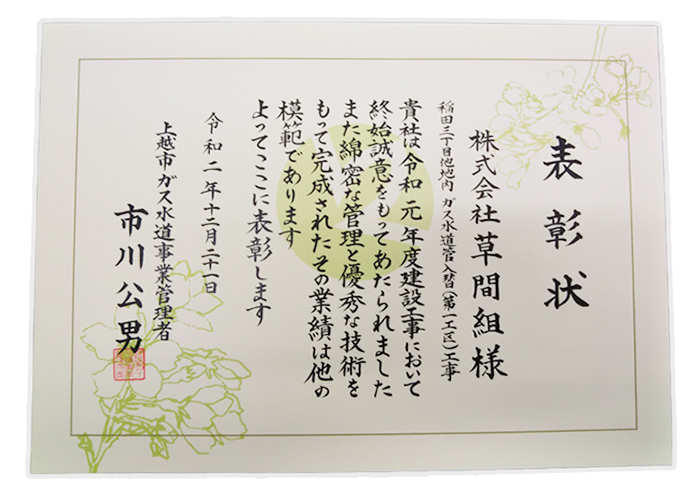 表彰状
株式会社草間組様
稲田三丁目他地内 ガス水道管入替(第一工区)工事
貴社は令和元年度建設工事において
終始誠意をもってあたられました
また綿密な管理と優秀な技術を
もって完成されたその業績は他の
模範であります
よってここに表彰します
令和二年十二月二十一日
上越市ガス水道事業管理者
市川公男